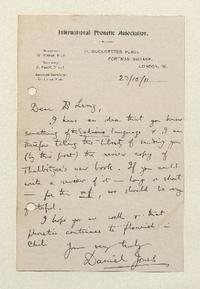 International Phonetic Association.
President:
Secretary:
Assistant Secretary:
PORTMAN SQUARE,
LONDON, W.
23/10/11
Dear Dr Lenz,
I have an idea that you know
something of the Eskimo language & I am
therefore taking the liberty of sending you
(by this post) the review copy of
Thalbitzer's new book. If you could
write a review of it — long or short
— for the mf, we should be very
grateful.
I hope you are well & that
phonetics continues to flourish in
Chili
Yours very truly
Daniel Jones